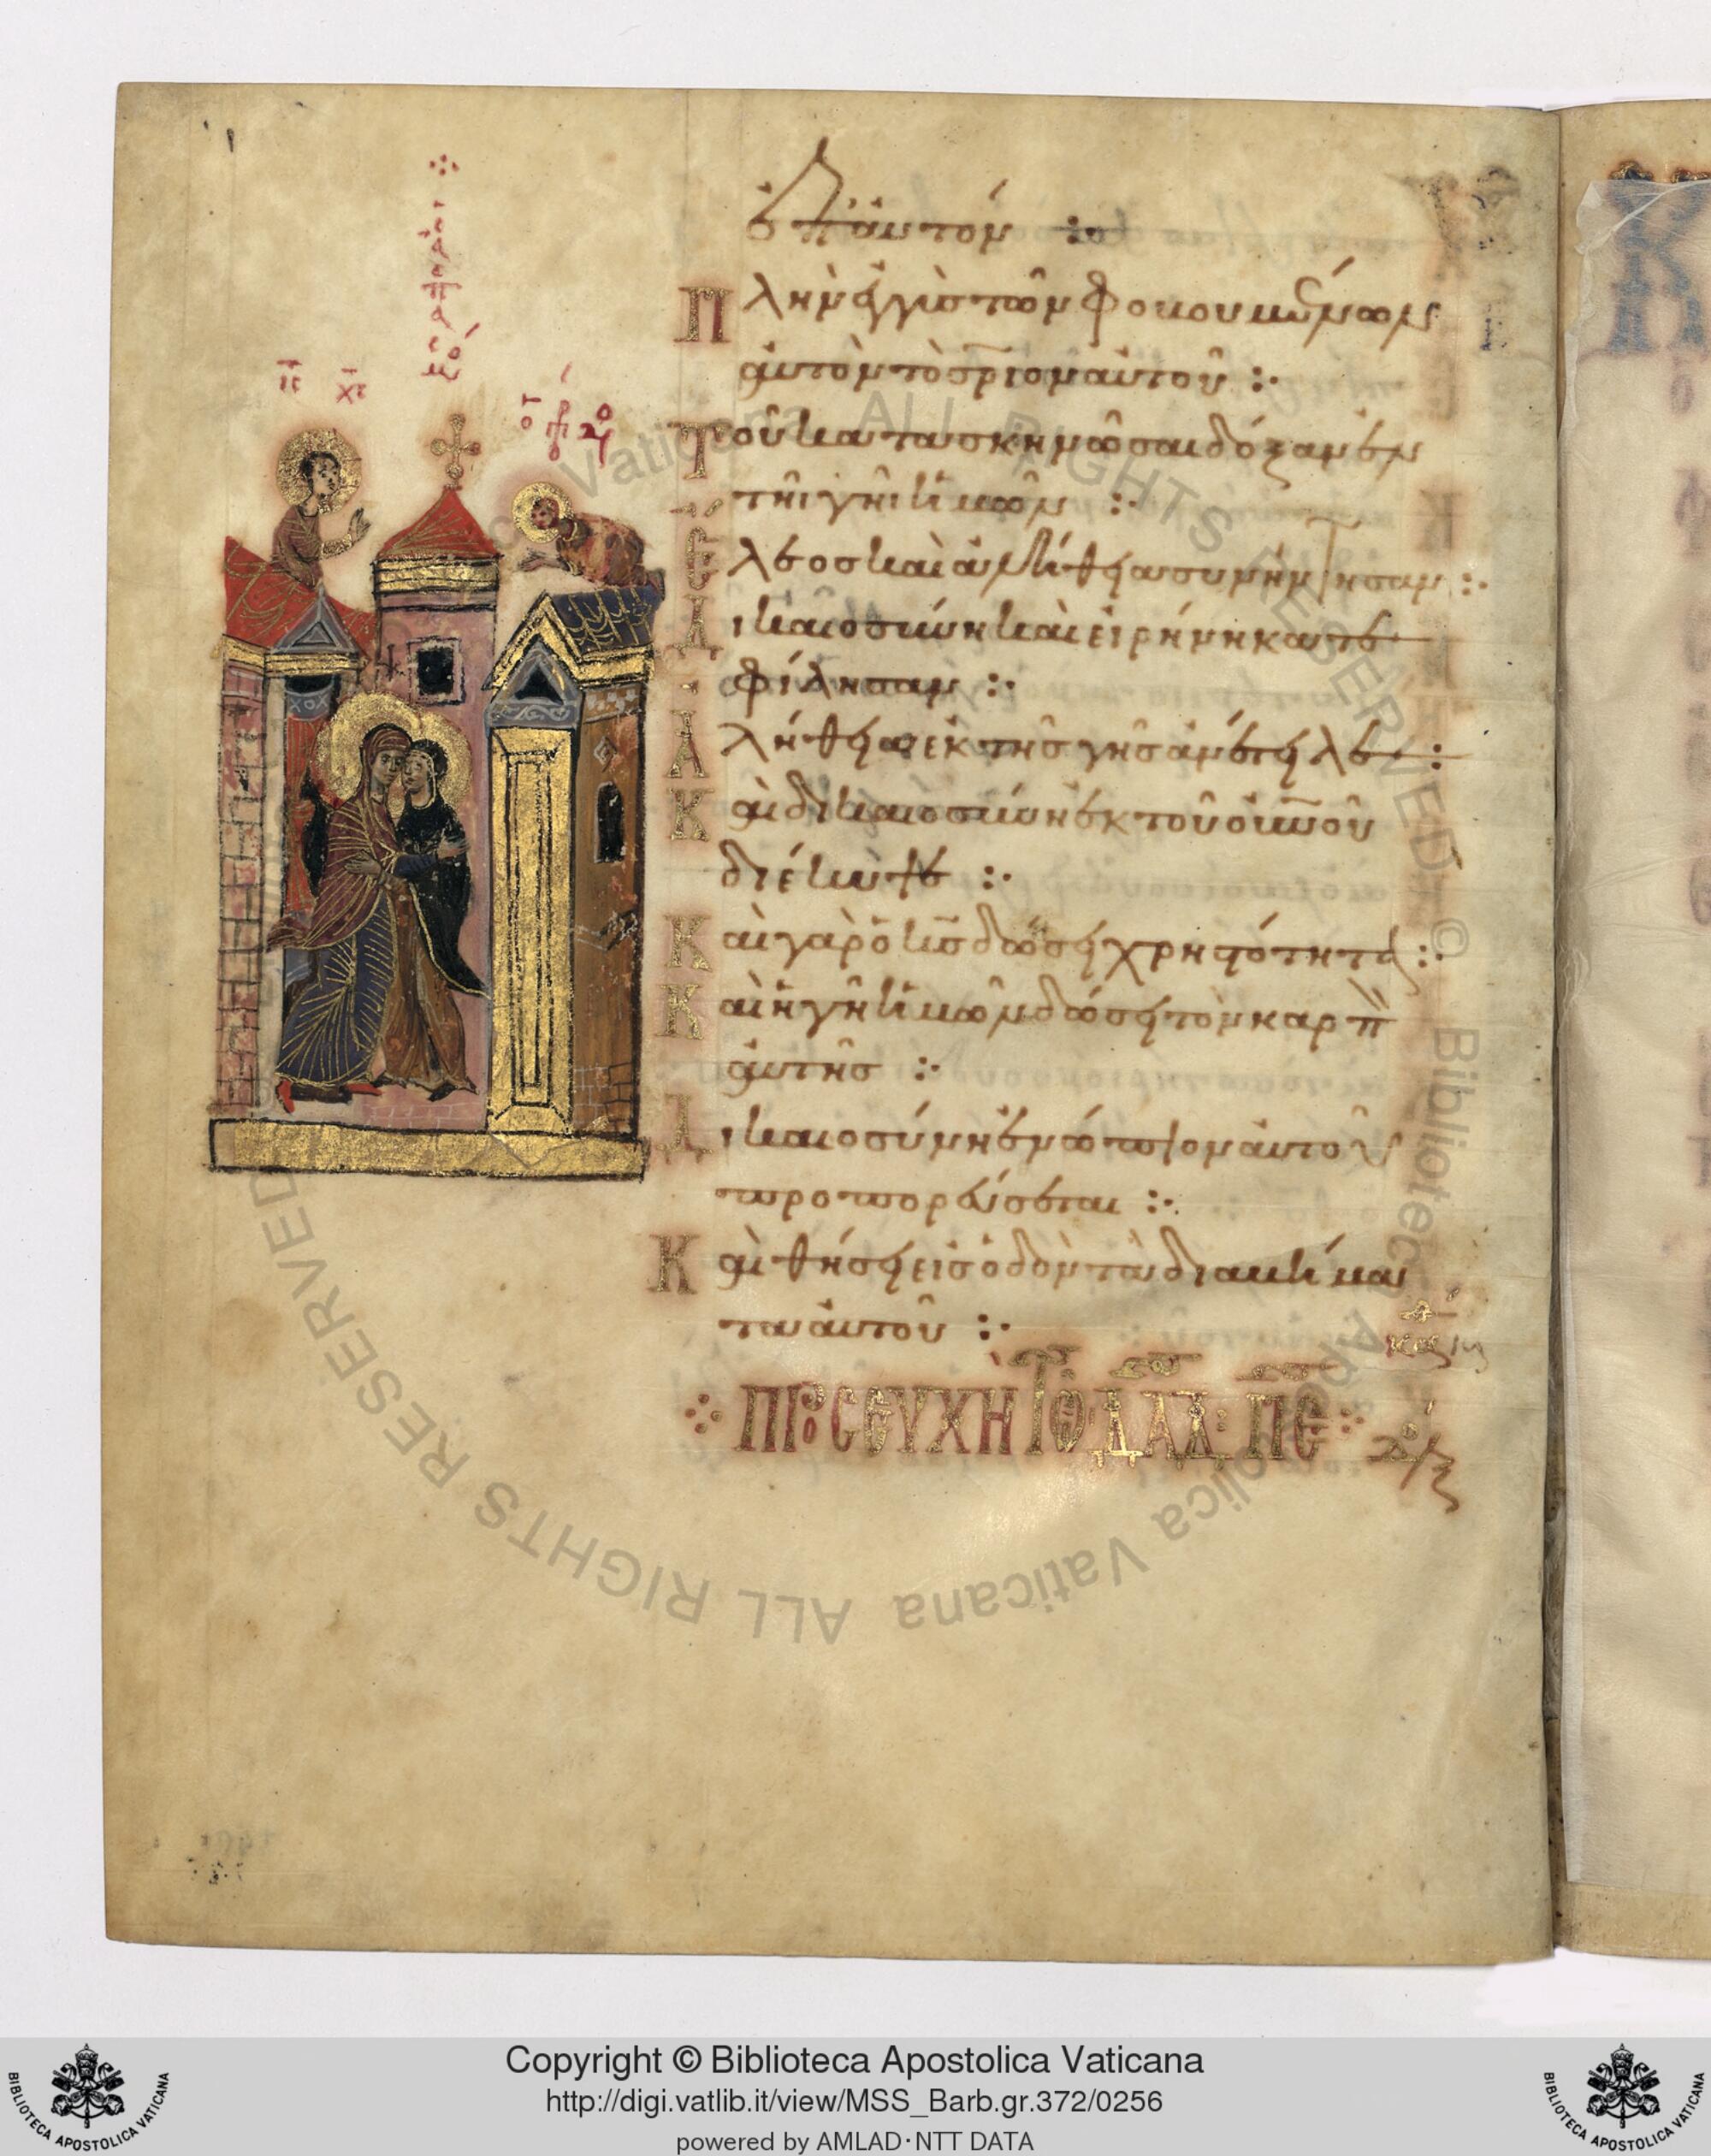 ἐπ' αὐτόν :·
Πλὴν ἐγγὺς τῶν φοβουμένων
αὐτὸν τὸ σ̅ρ̅ιον αὐτοῦ :·
Τοῦ κατασκηνῶσαι δόξαν ἐν
τῆι γῆι ἡμῶν :·
Ἔλεος καὶ ἀλήθεια συνήντησαν :·
Δικαιοσύνη καὶ εἰρήνη κατε
φίλησαν :·
Ἀλήθεια ἐκ τῆς γῆς ἀνέτειλε :
Καὶ δικαιοσύνη ἐκ τοῦ ο̅υ̅ν̅ο̅ῦ
διέκυψε :·
Καὶ γὰρ ὁ κ̅ς̅ δώσει χρηστότητα :·
Καὶ ἡ γῆ ἡμῶν δώσει τὸν καρπὸν
αὐτῆς :·
Δικαιοσύνη ἐνώπιον αὐτοῦ
προπορεύσεται :·
Καὶ θήσει εἰς ὁδὸν τὰ διαβήματα
αὐτοῦ :·
ΠΡΟΣΕΥΧῊ ΤΩ ΔΑΔ ΠΕ
ΙΣ ΧΣ
Ὁ ἀσπασμός
Biblioteca Apostolica Vaticana ALL RIGHTS RESERVED ©
Copyright © Biblioteca Apostolica Vaticana
http://digi.vatlib.it/view/MSS_Barb.gr.372/0256
powered by AMLAD·NTT DATA
BIBLIOTECA APOSTOLICA VATICANA
BIBLIOTECA APOSTOLICA VATICANA